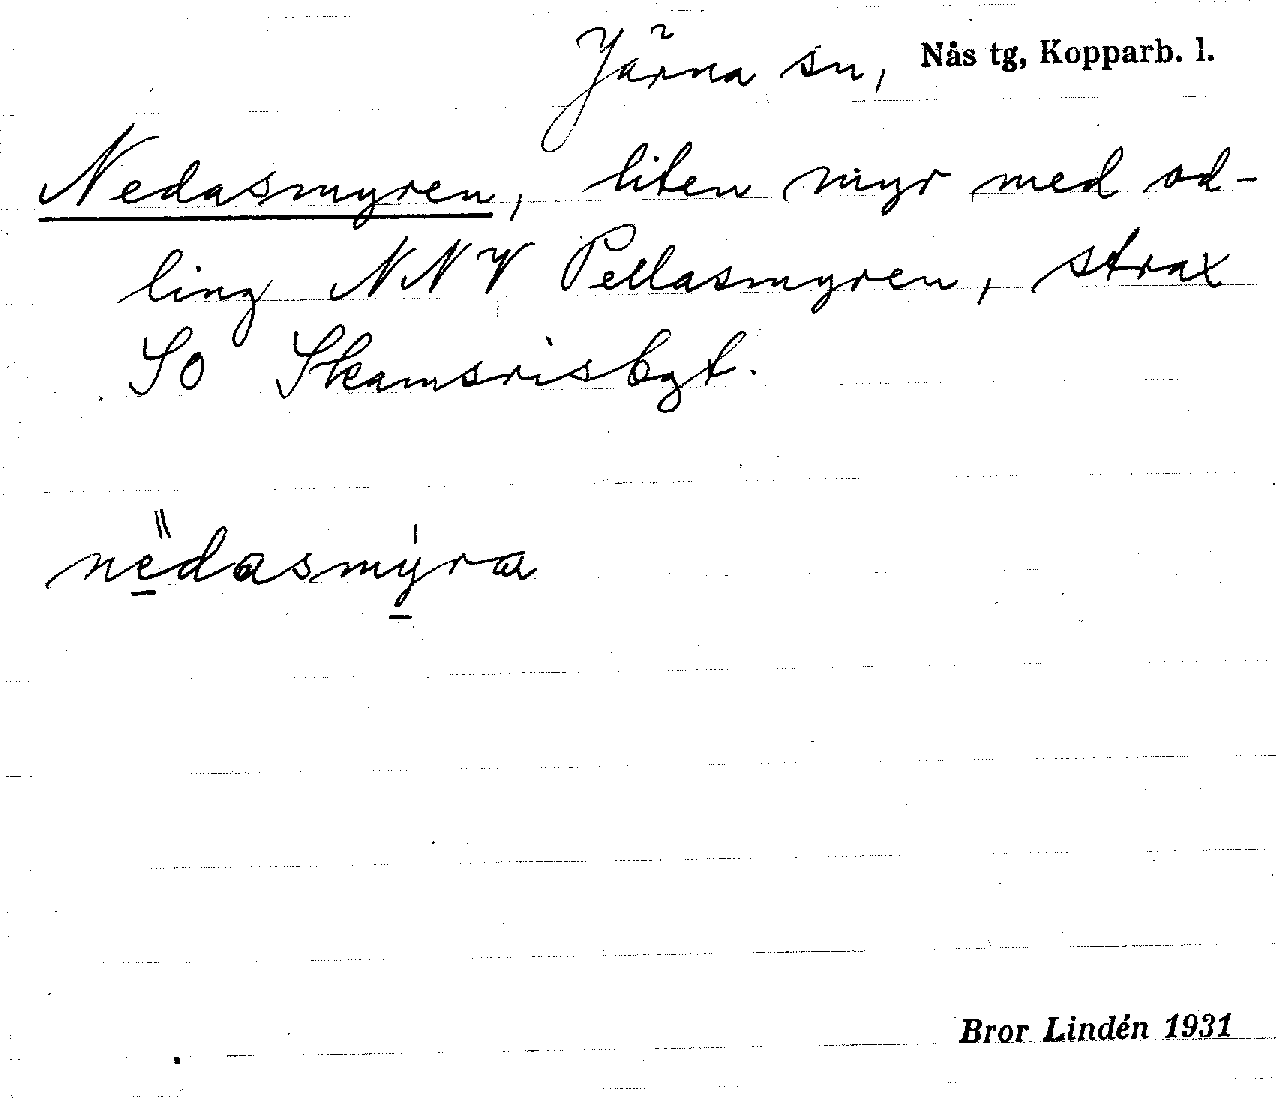 Järna sn, Nås tg, Kopparb. l.
Nedasmyren, liten myr med od-
ling NNV Pellasmyren, strax
SO Skamsrisbgt.
nedasmyra
Bror Lindén 1931